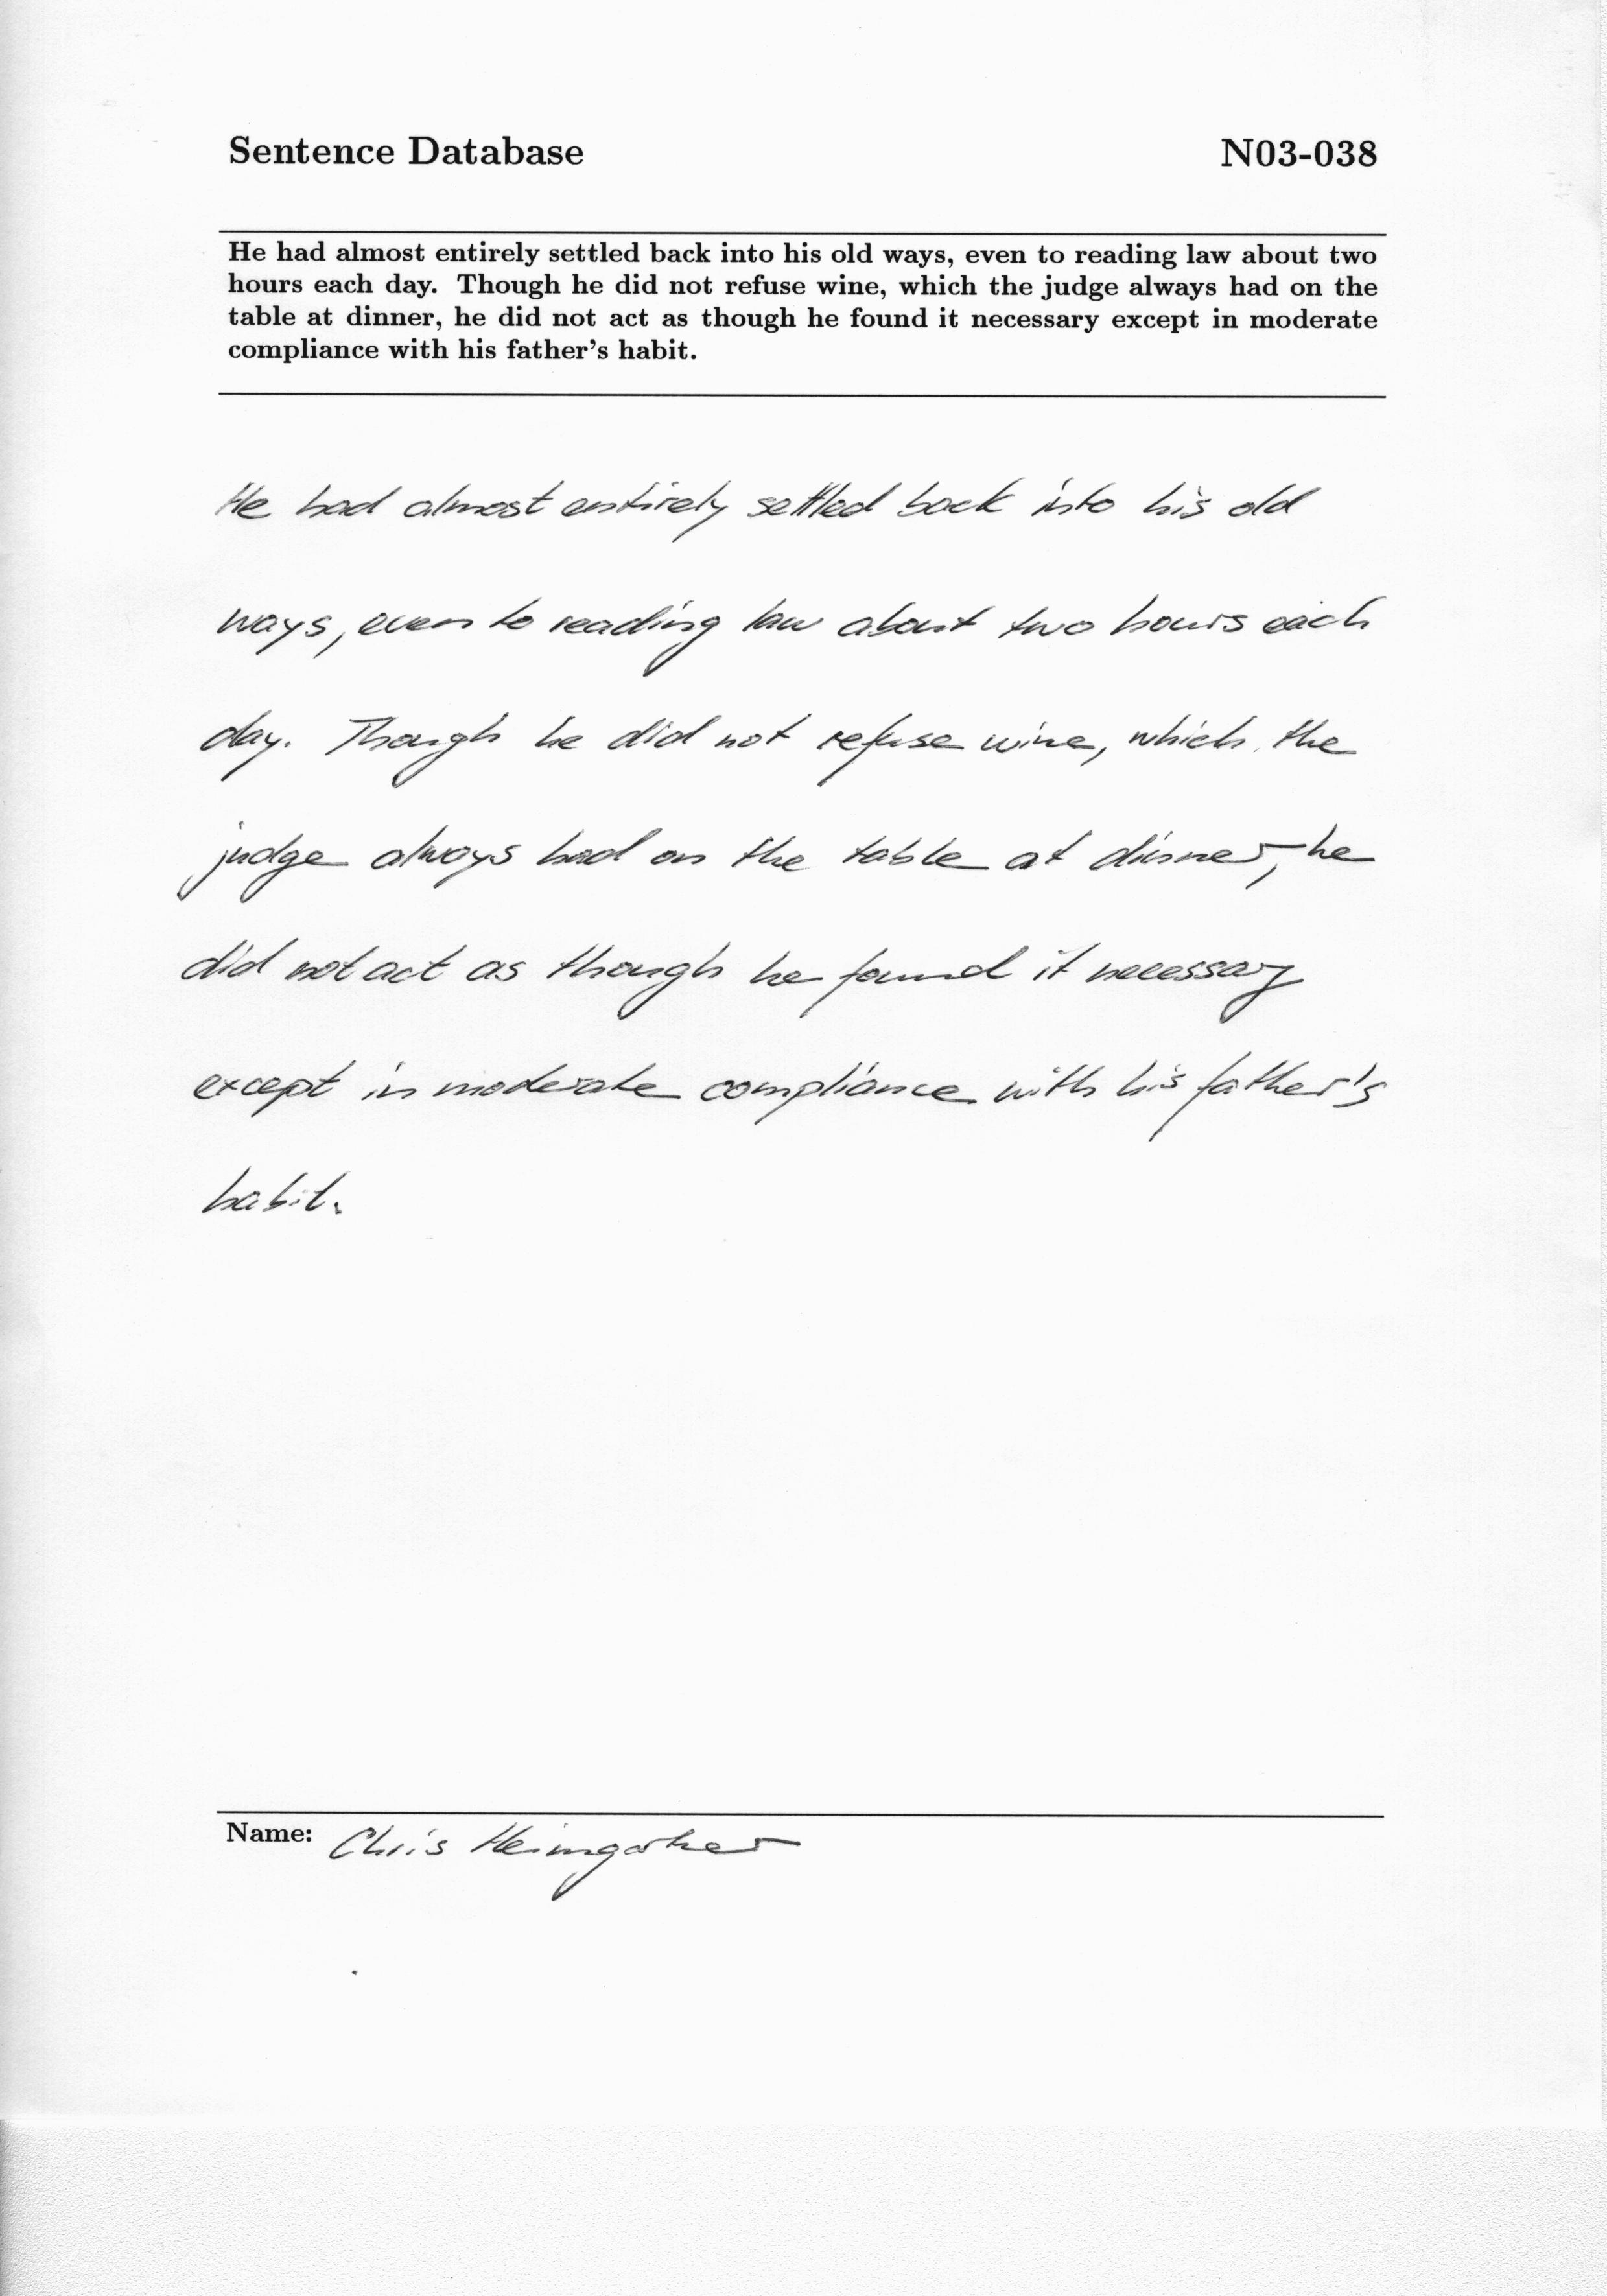 Sentence Database N03-038
He had almost entirely settled back into his old ways, even to reading law about two
hours each day. Though he did not refuse wine, which the judge always had on the
table at dinner, he did not act as though he found it necessary except in moderate
compliance with his father's habit.
He had almost entirely settled back into his old
ways, even to reading law about two hours each
day. Though he did not refuse wine, which the
judge always had on the table at dinner, he
did not act as though he found it necessary
except in moderate compliance with his father's
habit.
Name: Chris Heimgartner